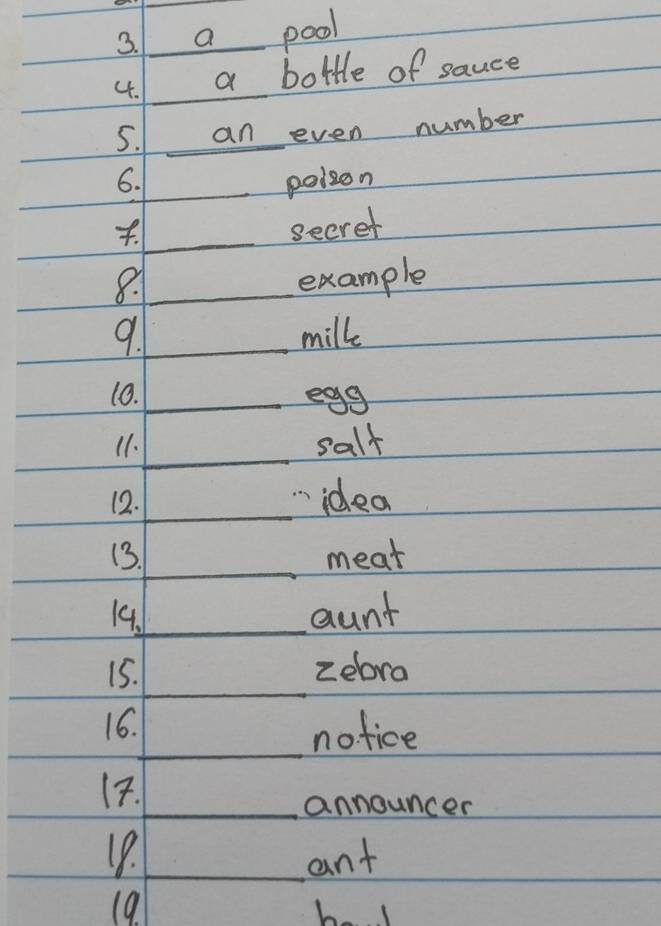 3. a pool
4. a bottle of sauce
5. an even number
6. poison
7. secret
8. example
9. milk
10. egg
11. salt
12. idea
13. meat
14. aunt
15. zebra
16. notice
17. announcer
18. ant
19.